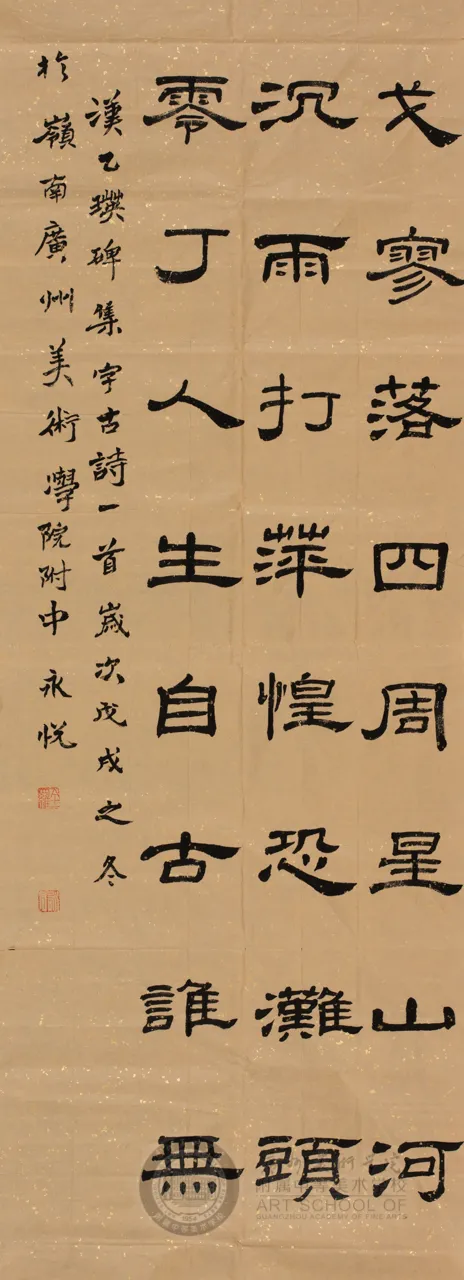 戈寥落四周星山河
沉雨打萍惶恐灘頭
零丁人生自古誰無
漢乙瑛碑集字古詩一首歲次戊戌之冬
於嶺南廣州美術學院附中永悦
附属中等美术学校
ART SCHOOL OF
GUANGZHOU ACADEMY OF FINE ARTS